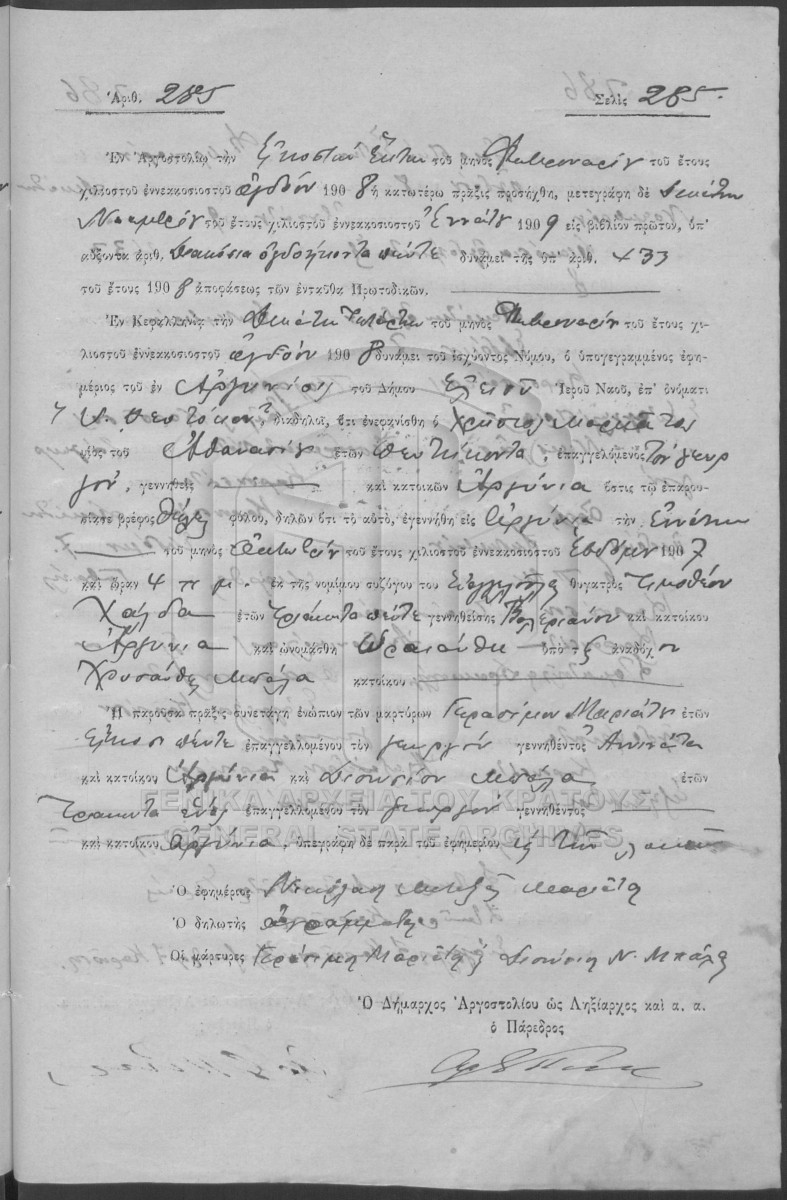 Ἀριθ. 285
Σελὶς 285.
Ἐν Ἀργοστολίῳ τὴν Εἰκοστὴν ἕκτην τοῦ μηνὸς Φεβρουαρίου τοῦ ἔτους
χιλιοστοῦ ἐννεακοσιοστοῦ ὀγδόου 1908 ἡ κατωτέρω πρᾶξις προσήχθη, μετεγράφη δὲ Δεκάτην
Νοεμβρίου τοῦ ἔτους χιλιοστοῦ ἐννεακοσιοστοῦ Ἐννάτου 1909 εἰς βιβλίον πρῶτον, ὑπ'
αὔξοντα ἀριθ. Διακόσια ὀγδοήκοντα πέντε δυνάμει τῆς ὑπ' ἀριθ. 433
τοῦ ἔτους 1908 ἀποφάσεως τῶν ἐνταῦθα Πρωτοδικῶν.
Ἐν Κεφαλληνίᾳ τὴν Δεκάτην τετάρτην τοῦ μηνὸς Φεβρουαρίου τοῦ ἔτους χι-
λιοστοῦ ἐννεακοσιοστοῦ ὀγδόου 1908 δυνάμει τοῦ ἰσχύοντος Νόμου, ὁ ὑπογεγραμμένος ἐφη-
μέριος τοῦ ἐν Ἀργυνίοις τοῦ Δήμου Ἐλειοῦ Ἱεροῦ Ναοῦ, ἐπ' ὀνόματι
Υ. Θεοτόκου, διαδηλοῖ, ὅτι ἐνεφανίσθη ὁ Χρῆστος Μαριάτος
υἱὸς τοῦ Ἀθανασίου ἐτῶν πεντήκοντα, ἐπαγγελόμενος τὸν γεωρ
γόν, γεννηθεὶς καὶ κατοικῶν Ἀργύνια ὅστις τῷ ἐπαρου-
σίασε βρέφος θήλεος φύλου, δηλῶν ὅτι τὸ αὐτό, ἐγεννήθη εἰς Ἀργύνια τὴν Ἐννάτην
τοῦ μηνὸς Ὀκτωβρίου τοῦ ἔτους χιλιοστοῦ ἐννεακοσιοστοῦ Ἑβδόμου 1907
καὶ ὥραν 4 π μ. ἐκ τῆς νομίμου συζύγου του Εὐαγγελούλας θυγατρὸς Τιμοθέου
Χαλδα ἐτῶν τριάκοντα πέντε γεννηθείσης Βαλεριάνου καὶ κατοίκου
Ἀργύνια καὶ ὠνομάσθη Ὡραιάνθη ὑπὸ τῆς ἀναδόχου
Χρυσάνθης Μπάλα κατοίκου
Ἡ παροῦσα πρᾶξις συνετάγη ἐνώπιον τῶν μαρτύρων Γερασίμου Μαριάτου ἐτῶν
Εἴκοσι πέντε ἐπαγγελλομένου τὸν γεωργόν γεννηθέντος Ἀννινάτα
καὶ κατοίκου Ἀργύνια καὶ Διονυσίου Μπάλα ἐτῶν
Τριάκοντα ἑνός ἐπαγγελλομένου τὸν γεωργόν γεννηθέντος
καὶ κατοίκου Ἀργύνια, ὑπεγράφη δὲ παρὰ τοῦ ἐφημερίου
ΓΕΝΙΚΑ ΑΡΧΕΙΑ ΤΟΥ ΚΡΑΤΟΥΣ
GENERAL STATE ARCHIVES
Ὁ ἐφημέριος Νικόλαος Μαριάτος
Ὁ δηλωτὴς ἀγράμματος
Οἱ μάρτυρες Γεράσιμος Μαριάτος Διονύσιος Ν. Μπάλας
Ὁ Δήμαρχος Ἀργοστολίου ὡς Ληξίαρχος καὶ α. α.
ὁ Πάρεδρος